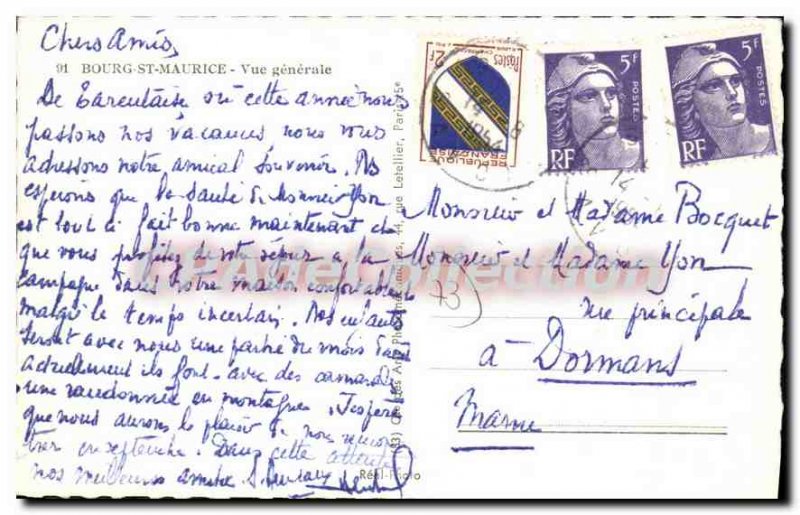 Chers Amis,
91 BOURG-ST-MAURICE - Vue générale
De Tarentaise où cette année nous
passons nos vacances nous vous
adressons notre amical souvenir. Nous
espérons que la santé de Monsieur Yon
est tout à fait bonne maintenant et
que vous profitez de votre séjour à la
campagne dans votre maison confortable
malgré le temps incertain. Nos enfants
seront avec nous une partie du mois d'août
actuellement ils font avec des camarades
une randonnée en montagne. J'espère
que nous aurons le plaisir de nous
en septembre. Dans cette attente
nos meilleures amitiés
Réal-Photo
44, rue Letellier, Paris-15e
2F
Postes
REPUBLIQUE
FRANÇAISE
5F
POSTES
RF
5F
POSTES
RF
Monsieur et Madame Bocquet
Monsieur et Madame Yon
rue principale
à Dormans
Marne
CPA de Collection